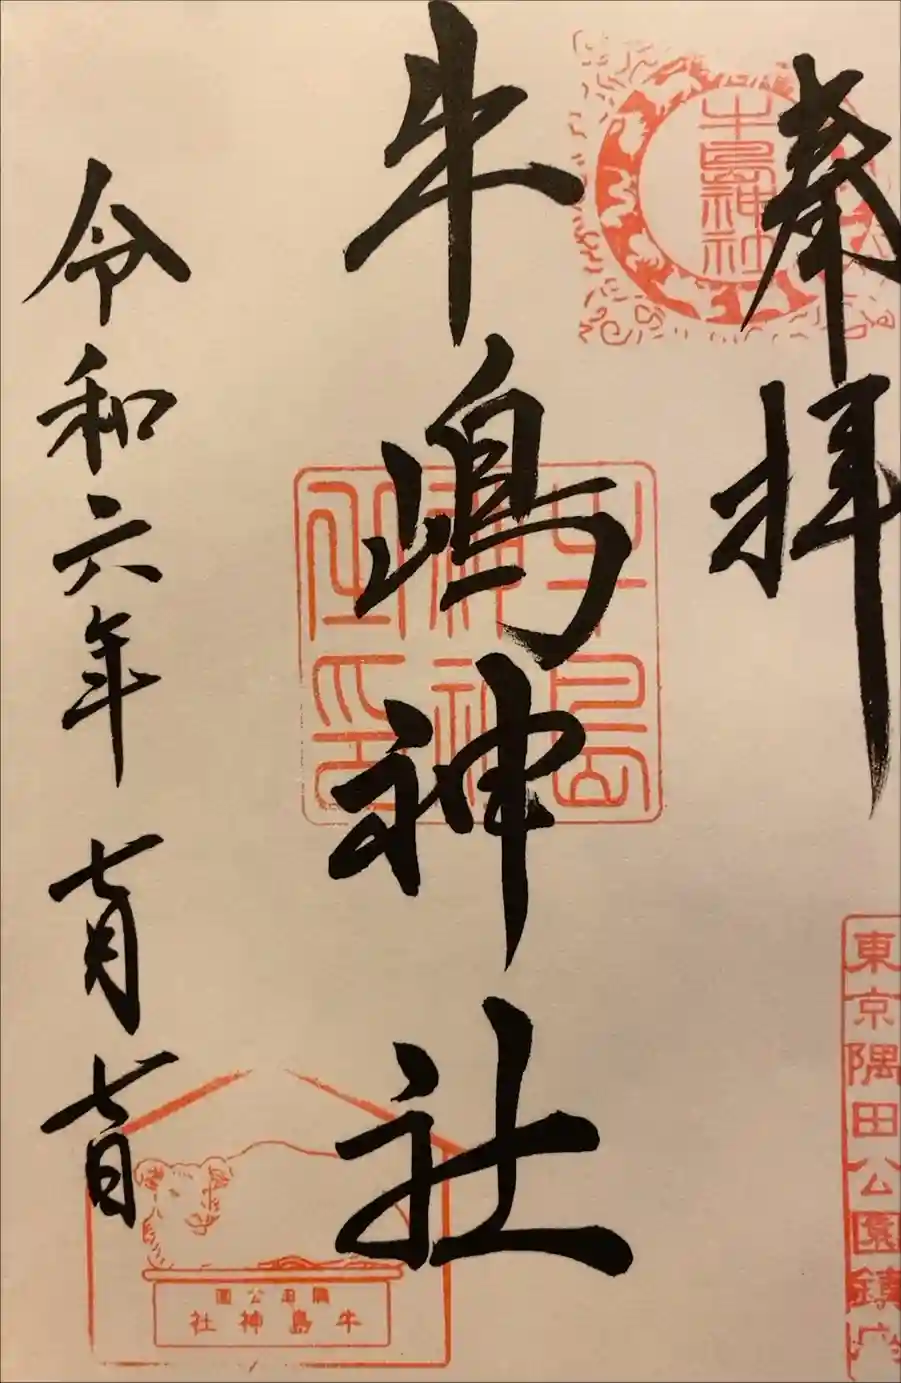 奉拝
牛島神社
牛嶋神社
牛島
神社
之印
東京隅田公園鎮
令和六年七月七日
隅田公園
牛島神社